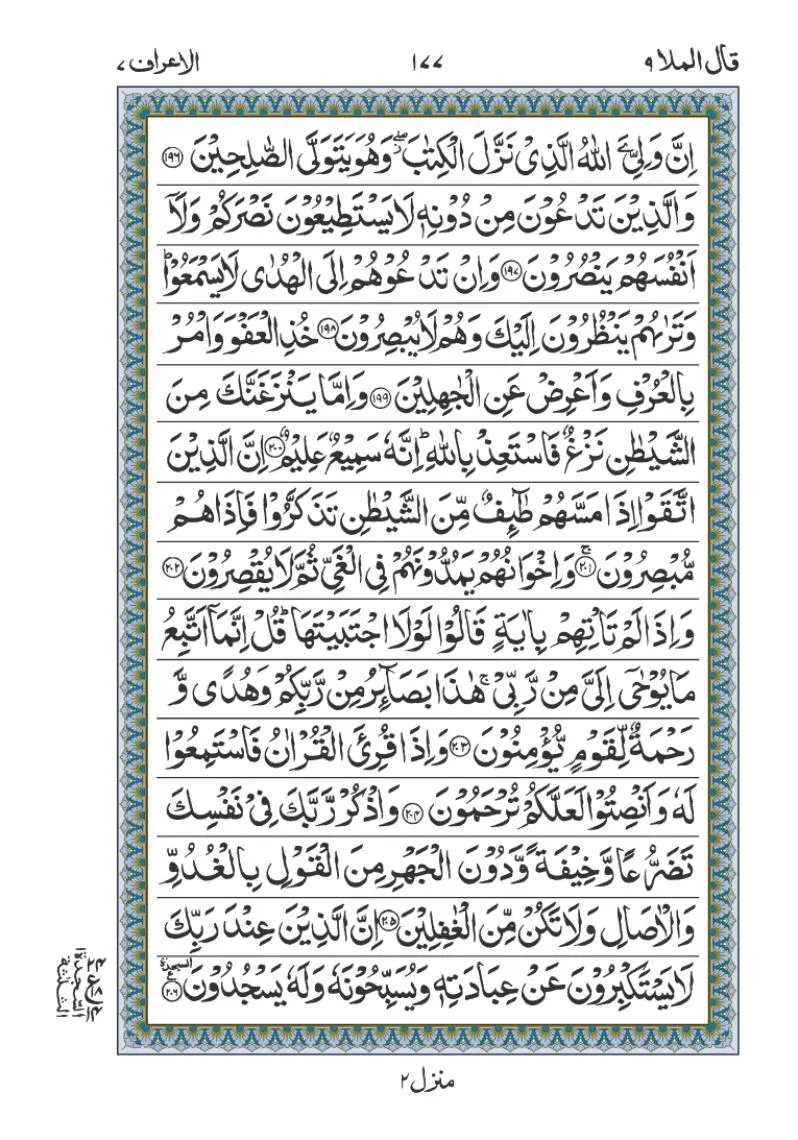 قال الملا ٩
١٧٧
الاعراف ٧
اِنَّ وَلِیِّ ےَ اللّٰهُ الَّذِیْ نَزَّلَ الْكِتٰبَ ۖ٘ وَهُوَ یَتَوَلَّی الصّٰلِحِیْنَ ۝۱۹۶
وَالَّذِیْنَ تَدْعُوْنَ مِنْ دُوْنِهٖ لَا یَسْتَطِیْعُوْنَ نَصْرَكُمْ وَلَاۤ
اَنْفُسَهُمْ یَنْصُرُوْنَ ۝۱۹۷ وَاِنْ تَدْعُوْهُمْ اِلَی الْهُدٰی لَا یَسْمَعُوْا ؕ
وَتَرٰىهُمْ یَنْظُرُوْنَ اِلَیْكَ وَهُمْ لَا یُبْصِرُوْنَ ۝۱۹۸ خُذِ الْعَفْوَ وَاْمُرْ
بِالْعُرْفِ وَاَعْرِضْ عَنِ الْجٰهِلِیْنَ ۝۱۹۹ وَاِمَّا یَنْزَغَنَّكَ مِنَ
الشَّیْطٰنِ نَزْغٌ فَاسْتَعِذْ بِاللّٰهِ ؕ اِنَّهٗ سَمِیْعٌ عَلِیْمٌ ۝۲۰۰ اِنَّ الَّذِیْنَ
اتَّقَوْا اِذَا مَسَّهُمْ طٰٓىِٕفٌ مِّنَ الشَّیْطٰنِ تَذَكَّرُوْا فَاِذَا هُمْ
مُّبْصِرُوْنَ ۚ۝۲۰۱ وَاِخْوَانُهُمْ یَمُدُّوْنَهُمْ فِی الْغَیِّ ثُمَّ لَا یُقْصِرُوْنَ ۝۲۰۲
وَاِذَا لَمْ تَاْتِهِمْ بِاٰیَةٍ قَالُوْا لَوْلَا اجْتَبَیْتَهَا ؕ قُلْ اِنَّمَاۤ اَتَّبِعُ
مَا یُوْحٰۤی اِلَیَّ مِنْ رَّبِّیْ ۚ هٰذَا بَصَآىِٕرُ مِنْ رَّبِّكُمْ وَهُدًی وَّ
رَحْمَةٌ لِّقَوْمٍ یُّؤْمِنُوْنَ ۝۲۰۳ وَاِذَا قُرِئَ الْقُرْاٰنُ فَاسْتَمِعُوْا
لَهٗ وَاَنْصِتُوْا لَعَلَّكُمْ تُرْحَمُوْنَ ۝۲۰۴ وَاذْكُرْ رَّبَّكَ فِیْ نَفْسِكَ
تَضَرُّعًا وَّخِیْفَةً وَّدُوْنَ الْجَهْرِ مِنَ الْقَوْلِ بِالْغُدُوِّ
وَالْاٰصَالِ وَلَا تَكُنْ مِّنَ الْغٰفِلِیْنَ ۝۲۰۵ اِنَّ الَّذِیْنَ عِنْدَ رَبِّكَ
لَا یَسْتَكْبِرُوْنَ عَنْ عِبَادَتِهٖ وَیُسَبِّحُوْنَهٗ وَلَهٗ یَسْجُدُوْنَ ۝۲۰۶ السجدة
منزل ٢